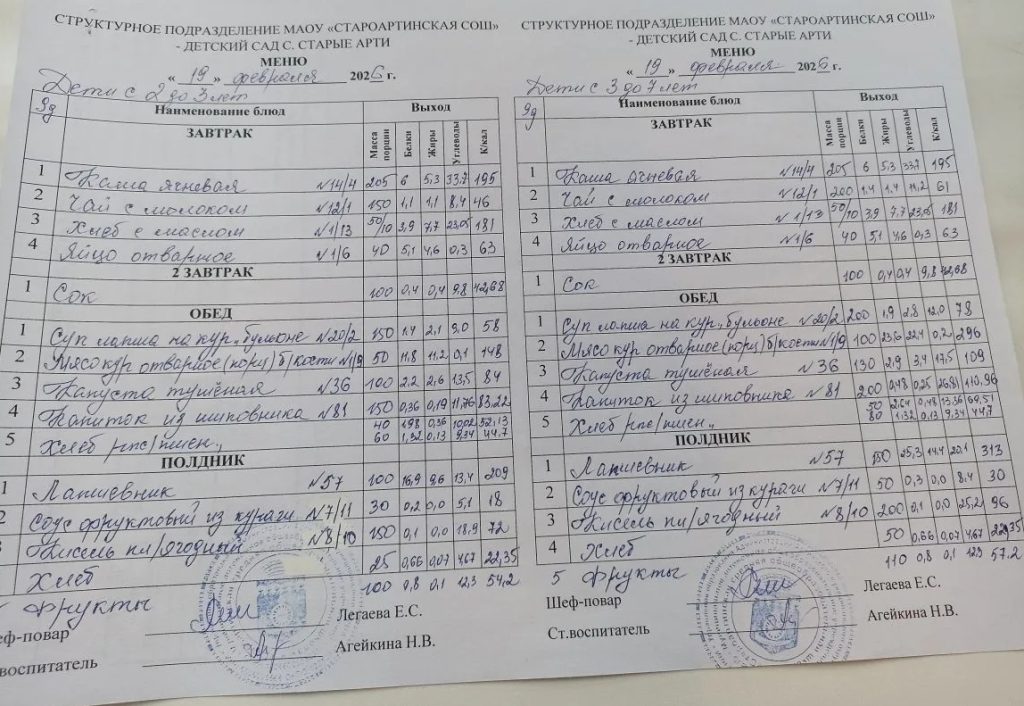 СТРУКТУРНОЕ ПОДРАЗДЕЛЕНИЕ МАОУ «СТАРОАРТИНСКАЯ СОШ»
- ДЕТСКИЙ САД С. СТАРЫЕ АРТИ
МЕНЮ
« 19 » февраля 2026 г.
Дети с 2 до 3 лет
9д Наименование блюд Выход
ЗАВТРАК Масса порции Белки Жиры Углеводы К/кал
1 Каша ячневая №14/4 205 6 5,3 33,7 195
2 Чай с молоком №12/1 150 1,1 1,1 8,4 46
3 Хлеб с маслом №1/13 50/10 3,9 7,7 23,05 181
4 Яйцо отварное №1/6 40 5,1 4,6 0,3 63
2 ЗАВТРАК
1 Сок 100 0,4 0,4 9,8 42,68
ОБЕД
1 Суп лапша на кур. бульоне №20/2 150 1.4 2,1 9,0 58
2 Мясо кур отварное (порц) б/кости №1/9 50 11,8 11,2 0,1 148
3 Капуста тушёная №36 100 2,2 2,6 13,5 84
4 Напиток из шиповника №81 150 0,36 0,19 11,76 83.22
5 Хлеб рпс/пшен. 40 1,98 0,36 10,02 52,13
60 1,32 0,13 9,34 44.7
ПОЛДНИК
1 Лапшевник №57 100 16,9 9,6 13,4 209
2 Соус фруктовый из кураги №7/11 30 0,2 0,0 5,1 18
3 Кисель пл/ягодный №8/10 150 0,1 0,0 18,9 72
Хлеб 25 0,66 0,07 4,67 22,35
фрукты 100 0,8 0,1 12,3 54,2
еф-повар Легаева Е.С.
.воспитатель Агейкина Н.В.
СТРУКТУРНОЕ ПОДРАЗДЕЛЕНИЕ МАОУ «СТАРОАРТИНСКАЯ СОШ»
- ДЕТСКИЙ САД С. СТАРЫЕ АРТИ
МЕНЮ
« 19 » февраля 2026 г.
Дети с 3 до 7 лет
9д Наименование блюд Выход
ЗАВТРАК Масса порции Белки Жиры Углеводы К/кал
1 Каша ячневая №14/4 205 6 5,3 33,7 195
2 Чай с молоком №12/1 200 1.4 1.4 11,2 61
3 Хлеб с маслом №1/13 50/10 3,9 7,7 23,05 181
4 Яйцо отварное №1/6 40 5,1 4,6 0,3 63
2 ЗАВТРАК
1 Сок 100 0,4 0,4 9,8 42,68
ОБЕД
1 Суп лапша на кур. бульоне №20/2 200 1,9 2,8 12,0 78
2 Мясо кур отварное (порц) б/кости №1/9 100 23,6 22,4 0,2 296
3 Капуста тушёная №36 130 2,9 3,4 17,5 109
4 Напиток из шиповника №81 200 0,48 0,25 26,81 110,96
5 Хлеб рпс/пшен. 50 2,64 0,48 13,36 69,51
80 1,32 0,13 9,34 44.7
ПОЛДНИК
1 Лапшевник №57 150 25,3 14.4 20,1 313
2 Соус фруктовый из кураги №7/11 50 0,3 0,0 8,4 30
3 Кисель пл/ягодный №8/10 200 0,1 0,0 25,21 96
4 Хлеб 50 0,66 0,07 4,67 22,35
5 Фрукты 110 0,8 0,1 12,3 57.2
Шеф-повар Легаева Е.С.
Ст.воспитатель Агейкина Н.В.